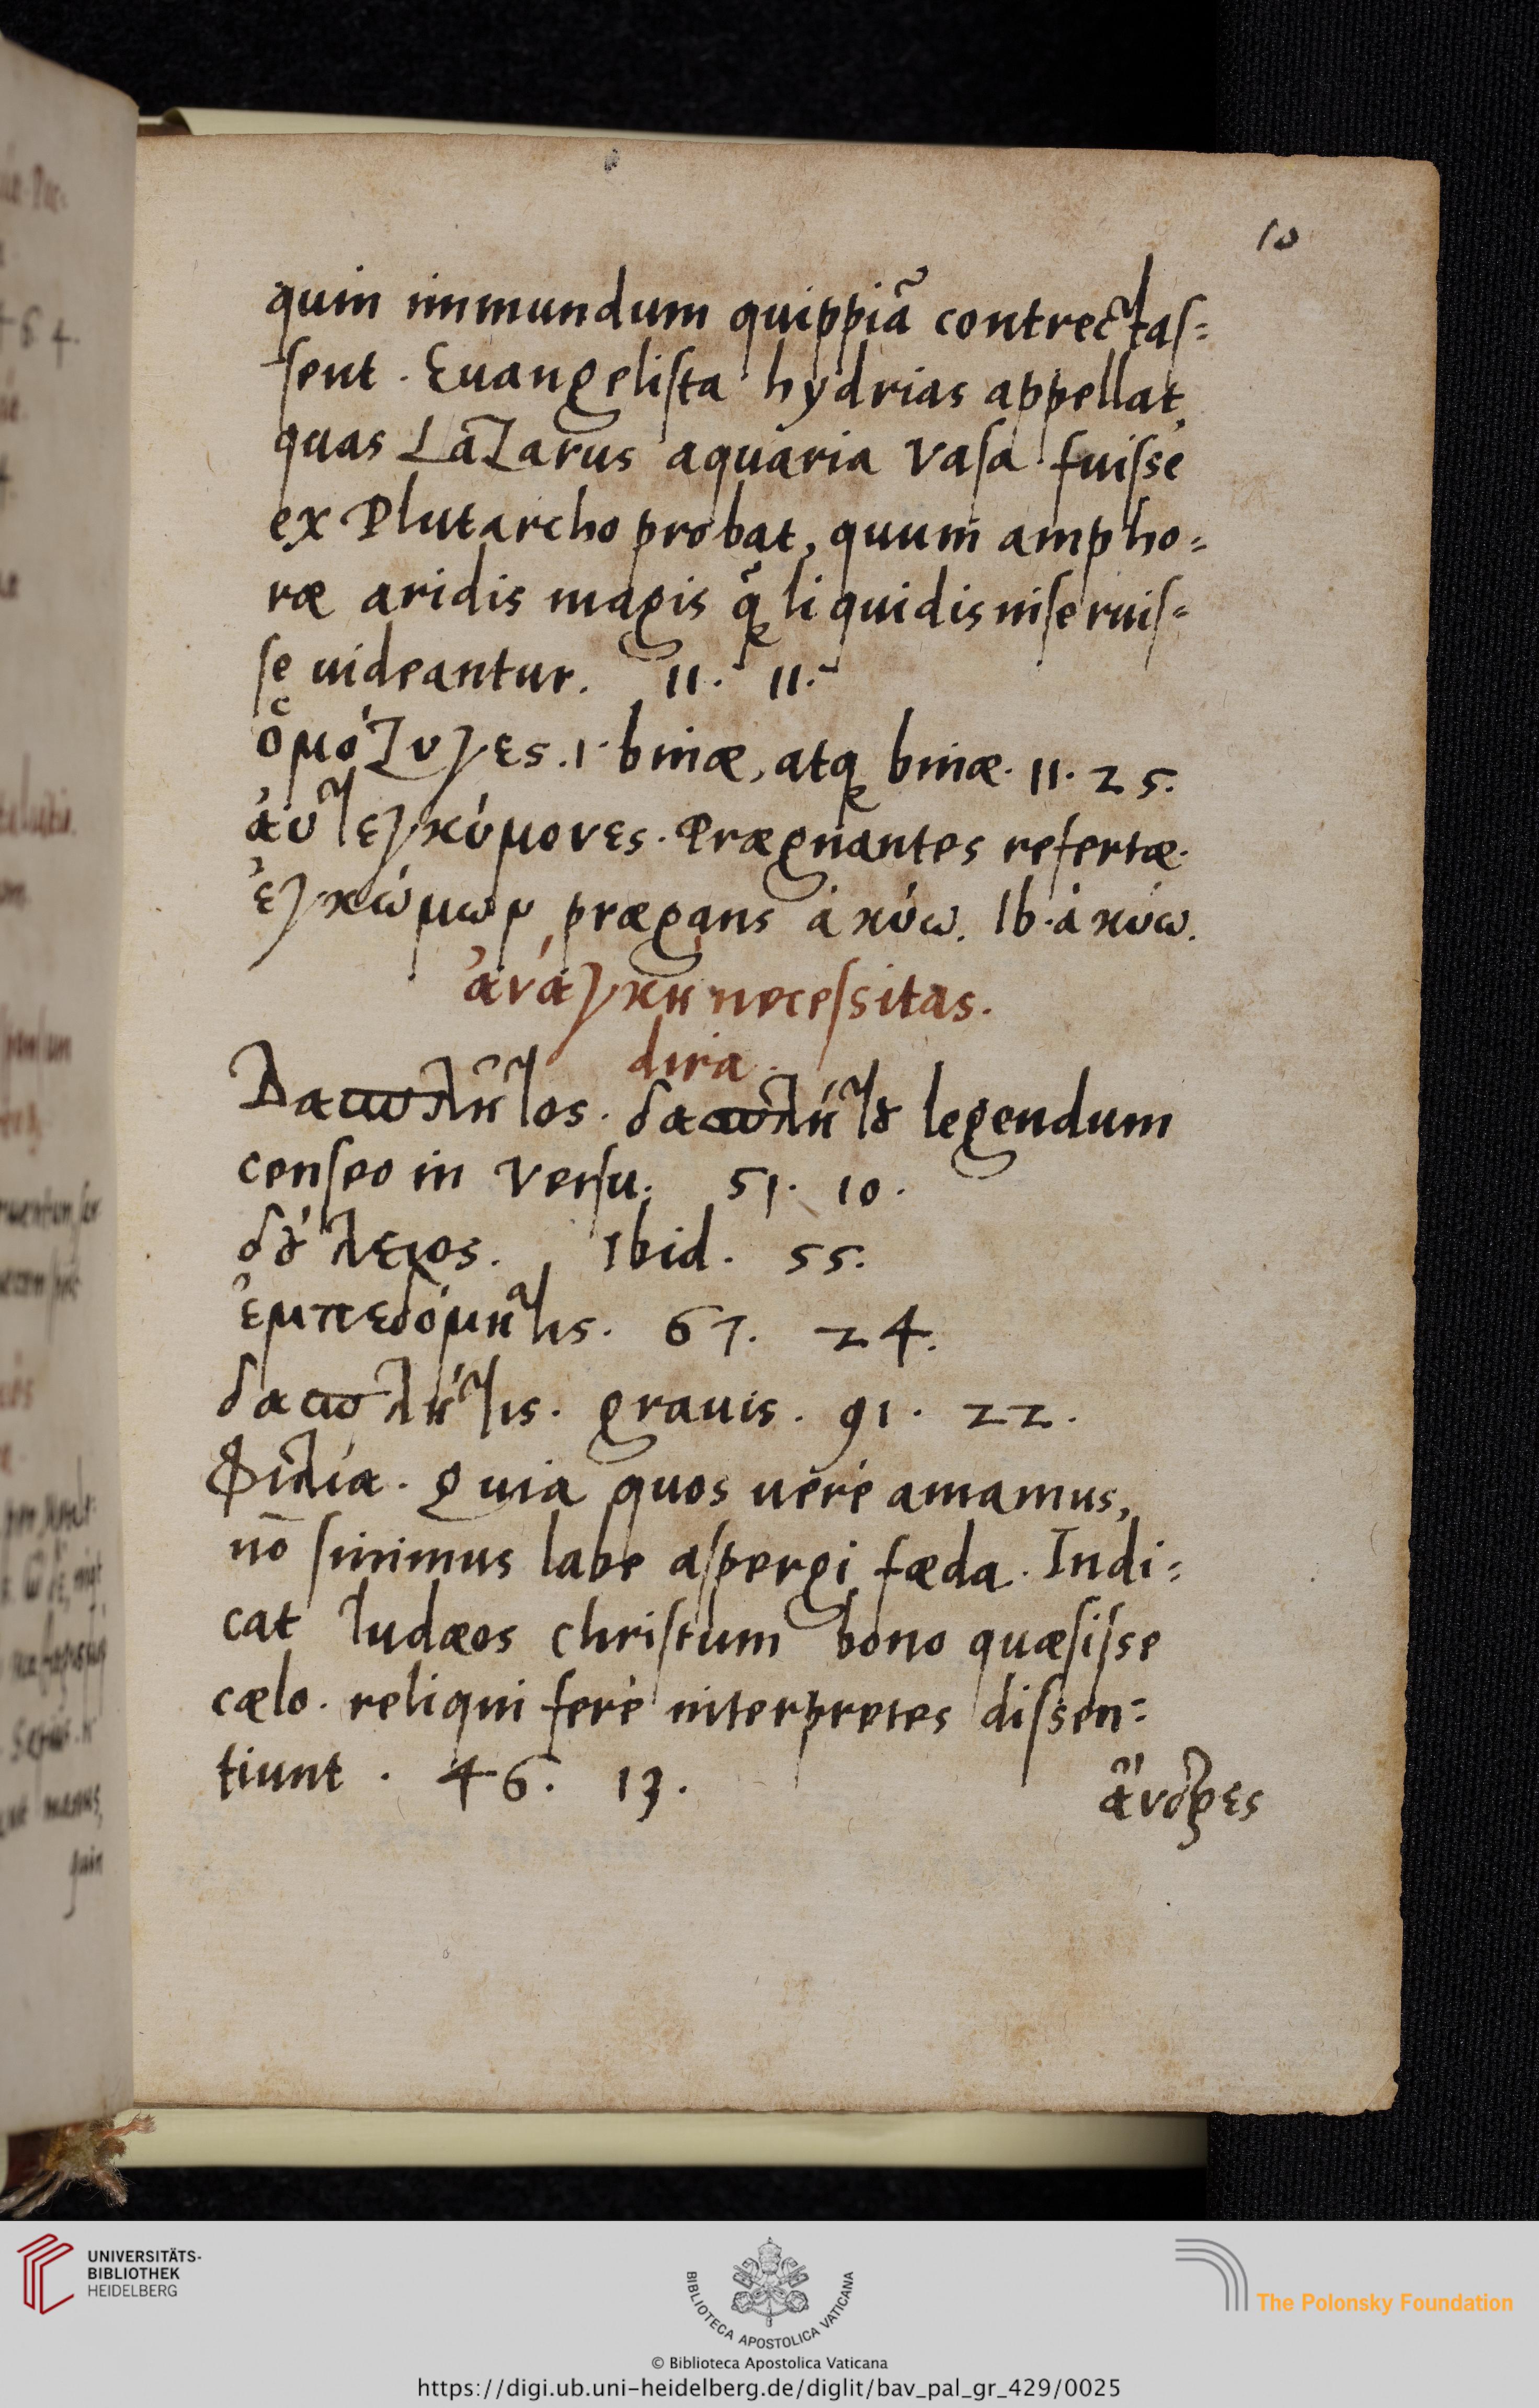 10
quin immundum quippiã contrectas=
sent. Euangelista hydrias appellat,
quas Lazarus aquaria vasa fuisse
ex Plutarcho probat, quum ampho=
ræ aridis magis q̃ liquidis inseruis=
se uideantur. 11. 11.
ὁμόζυγες .1. binæ, atq binæ. 11. 25.
ἀυτ ἐγκύμονες. Prægnantes refertæ.
ἐγκώμων prægans à κύω. Ib. à κύω.
ἀνάγκη necessitas.
dira.
Δασπλῆτος. δασπλήτȣ legendum
censeo in versu. 51. 10.
δȣ́λειος. Ibid. 55.
ἐμπεδόμητις. 67. 24.
δασπλήτις. grauis. 91. 22.
Φιλία. Quia quos uerè amamus,
nõ sinimus labe aspergi fæda. Indi=
cat Iudæos christum bono quæsisse
cælo. reliqui ferè interpretes dissen=
tiunt. 46. 13.
ἄνδρες
UNIVERSITÄTS-
BIBLIOTHEK
HEIDELBERG
BIBLIOTECA APOSTOLICA VATICANA
The Polonsky Foundation
© Biblioteca Apostolica Vaticana
https://digi.ub.uni-heidelberg.de/diglit/bav_pal_gr_429/0025